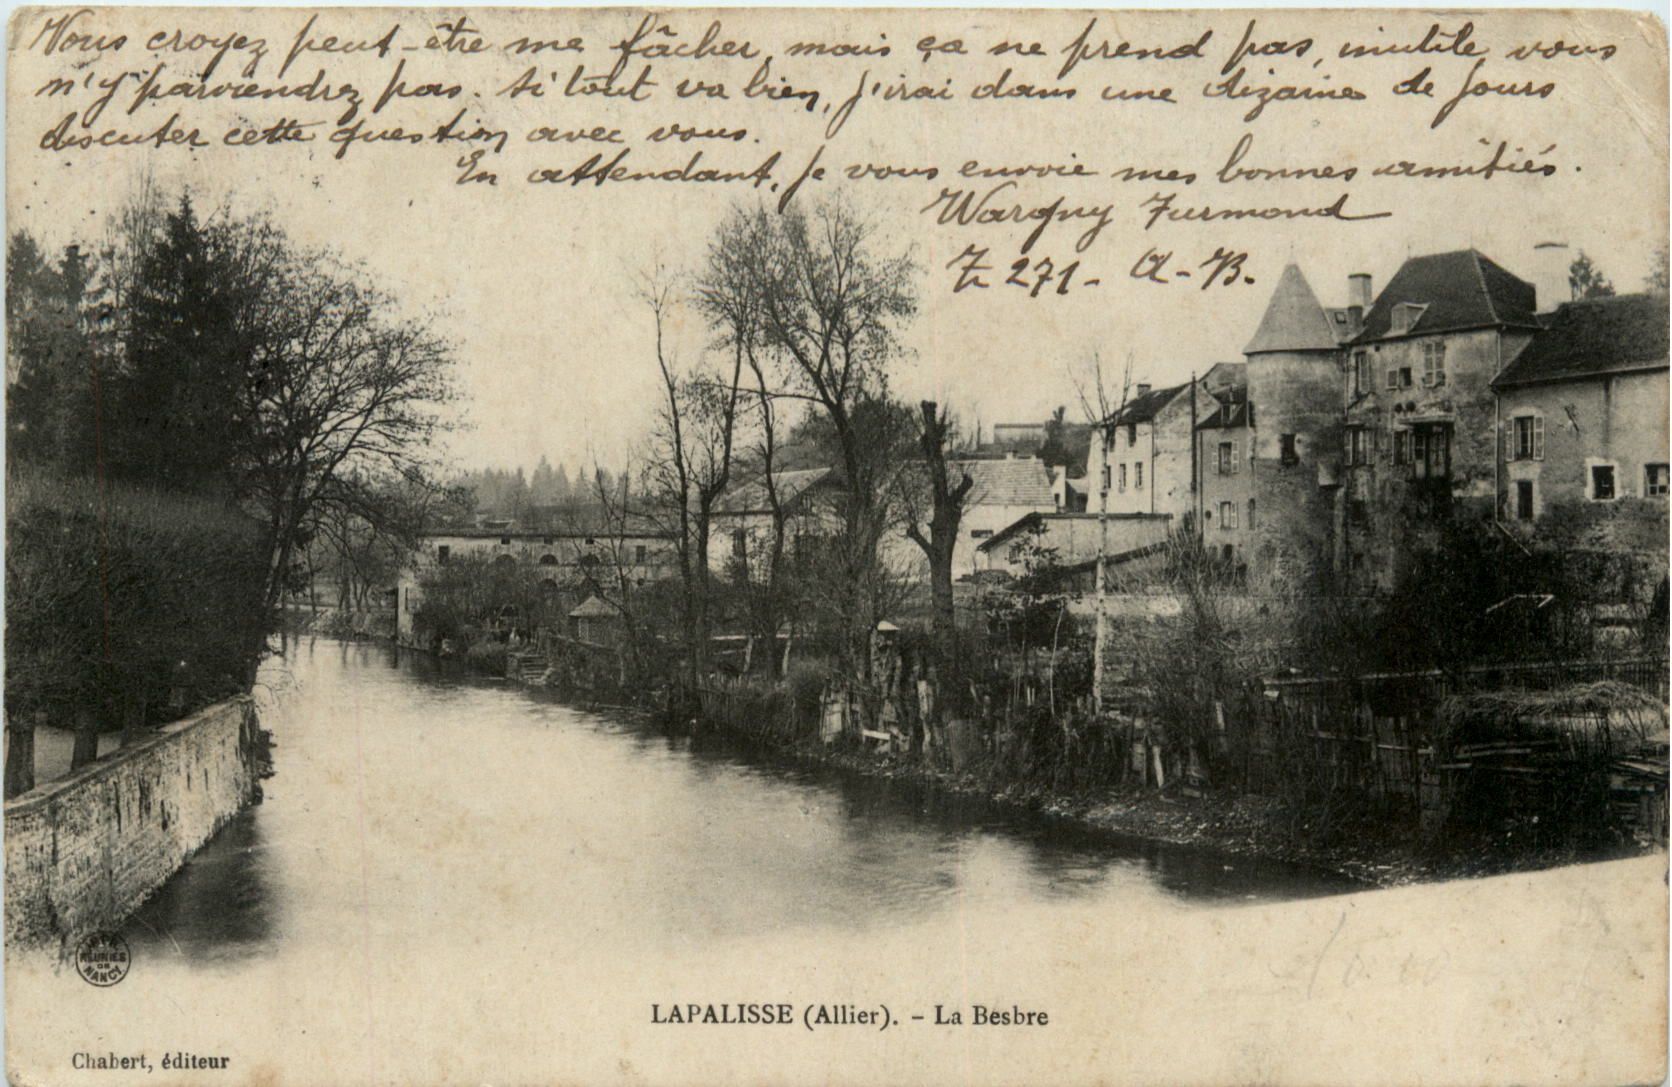 Vous croyez peut-être me fâcher, mais ça ne prend pas, inutile, vous
n'y parviendrez pas. Si tout va bien, j'irai dans une dizaine de jours
discuter cette question avec vous.
En attendant, je vous envoie mes bonnes amitiés.
Wargny Furmond
271 - A-B.
RÉUNIES
DE
NANCY
LAPALISSE (Allier). - La Besbre
Chabert, éditeur